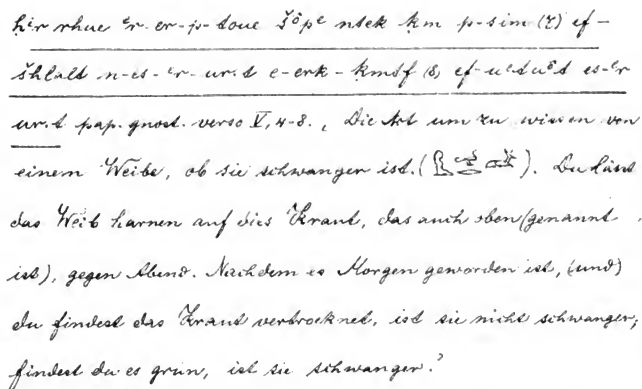 ḥr rhue er-er-p-toue šôpe ntek km p-sim (7) ef-
šhlalt n-es-er-ur.t e-erk-kmtf (8) ef-uetuet es-er
ur.t pap. gnost. verso V, 4-8. „Die Art um zu wissen von
einem Weibe, ob sie schwanger ist. ( ). Du lässt
das Weib harnen auf dies Kraut, das auch oben (genannt
ist), gegen Abend. Nachdem es Morgen geworden ist, (und)
du findest das Kraut vertrocknet, ist sie nicht schwanger;
findest du es grün, ist sie schwanger."